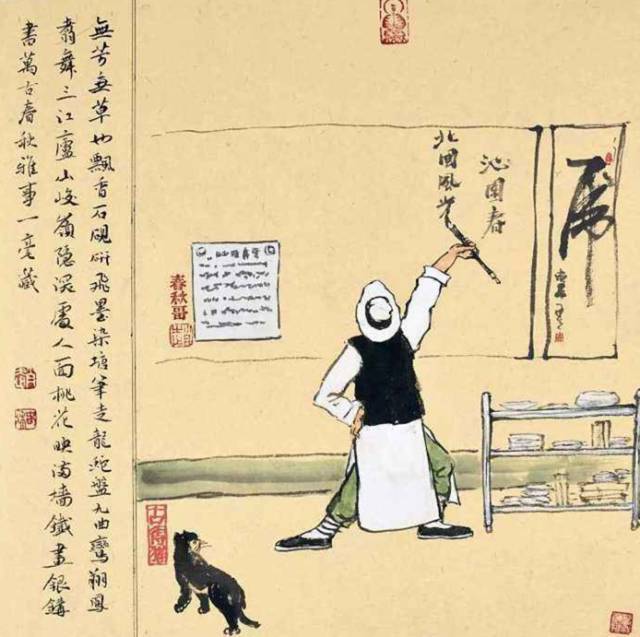 虎
沁園春
北國風光
春秋哥
無芳無草也飄香石硯研飛墨染塘筆走龍蛇盤九曲鸞翔鳳
翥舞三江廬山峻嶺隱深處人面桃花映满墻鐵畫銀鈎
書萬古春秋雅事一毫藏